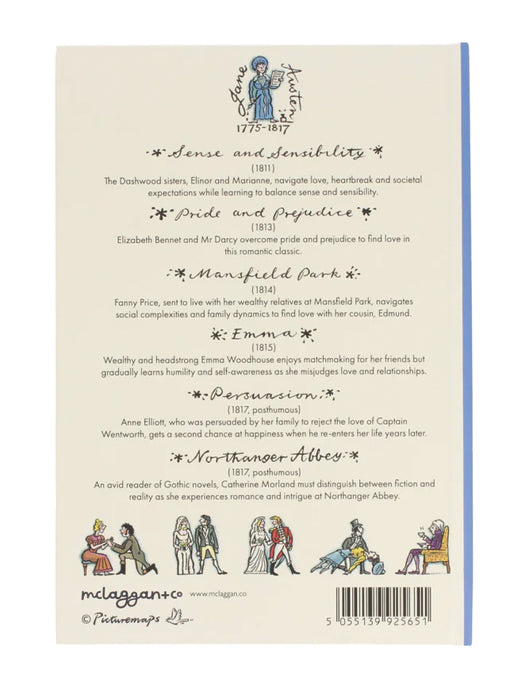 Jane Austen
1775-1817
Sense and Sensibility
(1811)
The Dashwood sisters, Elinor and Marianne, navigate love, heartbreak and societal
expectations while learning to balance sense and sensibility.
Pride and Prejudice
(1813)
Elizabeth Bennet and Mr Darcy overcome pride and prejudice to find love in
this romantic classic.
Mansfield Park
(1814)
Fanny Price, sent to live with her wealthy relatives at Mansfield Park, navigates
social complexities and family dynamics to find love with her cousin, Edmund.
Emma
(1815)
Wealthy and headstrong Emma Woodhouse enjoys matchmaking for her friends but
gradually learns humility and self-awareness as she misjudges love and relationships.
Persuasion
(1817, posthumous)
Anne Elliott, who was persuaded by her family to reject the love of Captain
Wentworth, gets a second chance at happiness when he re-enters her life years later.
Northanger Abbey
(1817, posthumous)
An avid reader of Gothic novels, Catherine Morland must distinguish between fiction and
reality as she experiences romance and intrigue at Northanger Abbey.
mclaggan+co www.mclaggan.com
© Picturemaps
5 055139 925651